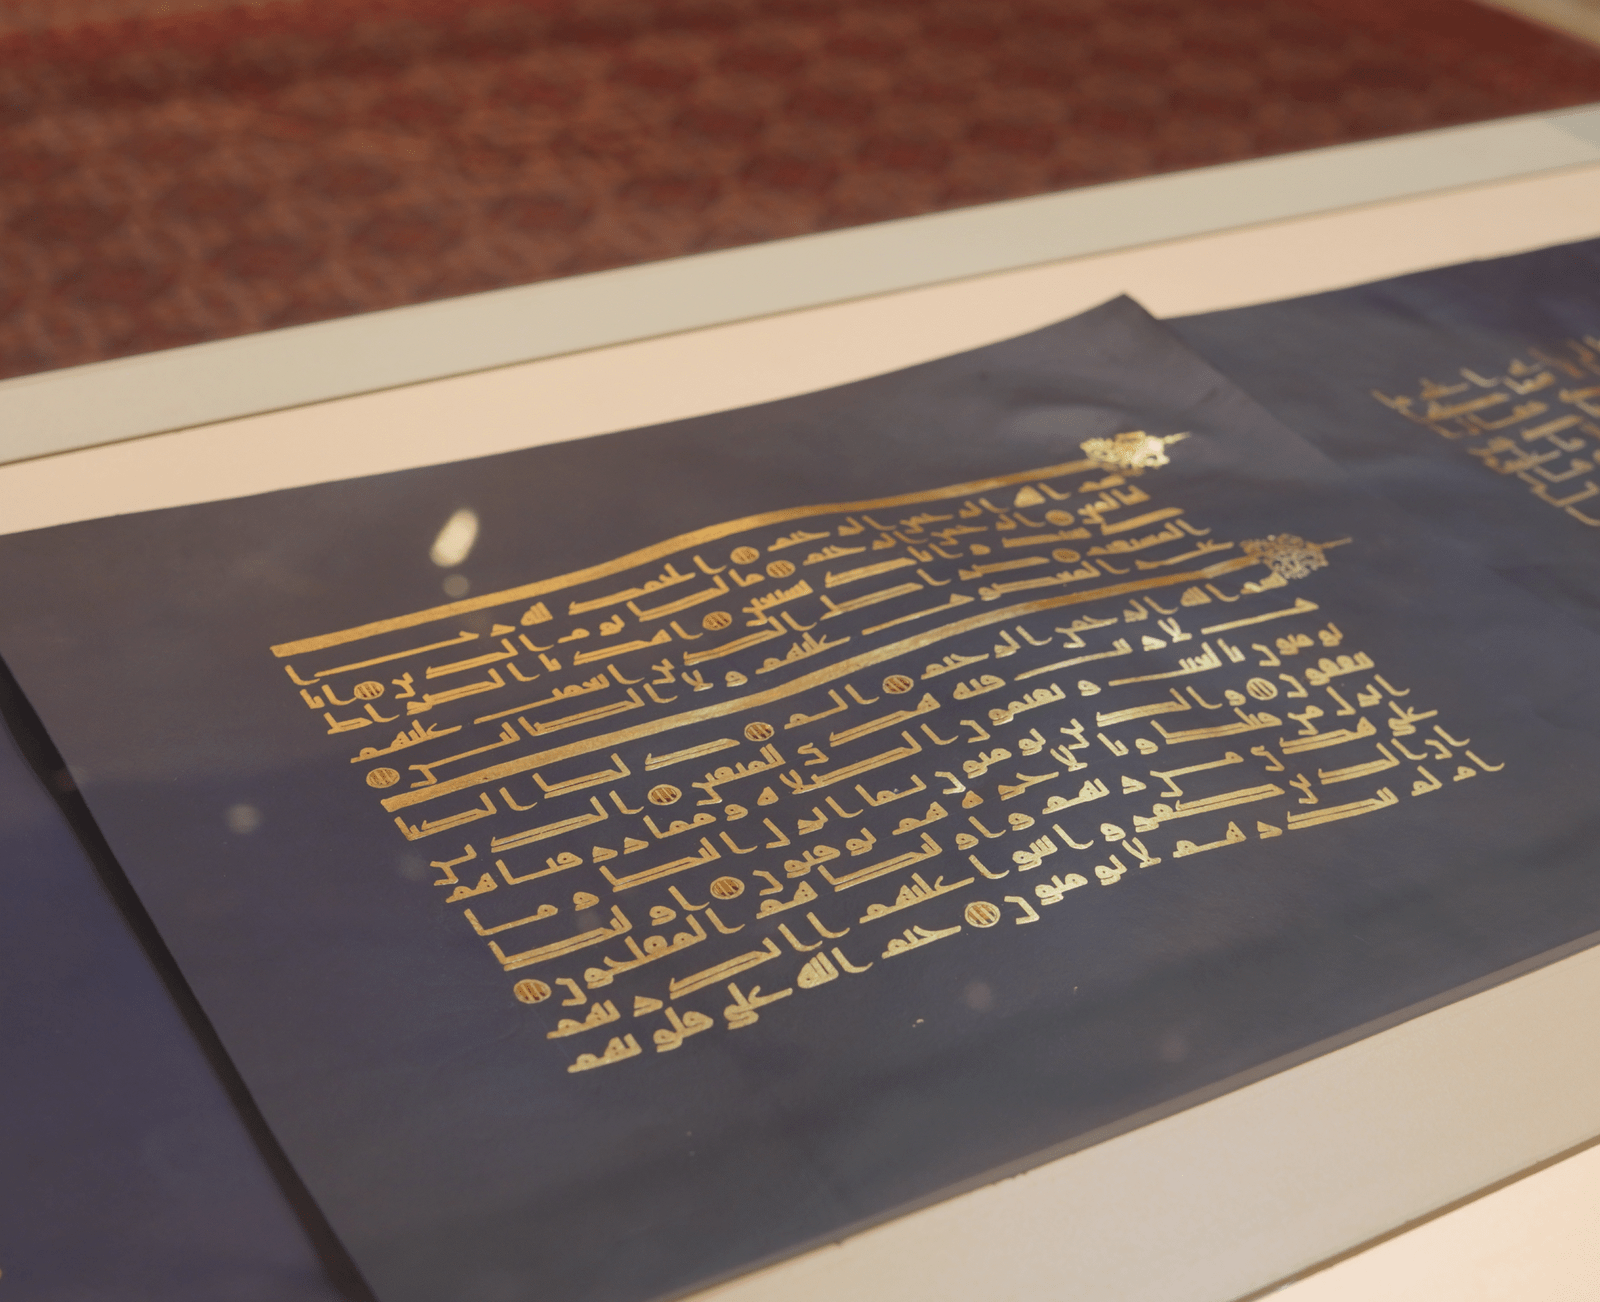 بسم الله الرحمن الرحيم الحمد لله رب ا
لعلمين الرحمن الرحيم ملك يوم الدين ايا
ك نعبد و اياك نستعين اهدنا الصراط
المستقيم صراط الذين انعمت عليهم
غير المغضوب عليهم و لا الضالين
بسم الله الرحمن الرحيم الم ذلك الكتا
ب لا ريب فيه هدى للمتقين الذين
يومنون بالغيب و يقيمون الصلاه ومما رزقناهم
ينفقون و الذين يومنون بما انزل اليك و ما
انزل من قبلك و بالاخره هم يوقنون اوليك
على هدى من ربهم و اوليك هم المفلحون
ان الذين كفروا سوا عليهم اانذرتهم
ام لم تنذرهم لا يومنون ختم الله على قلوبهم